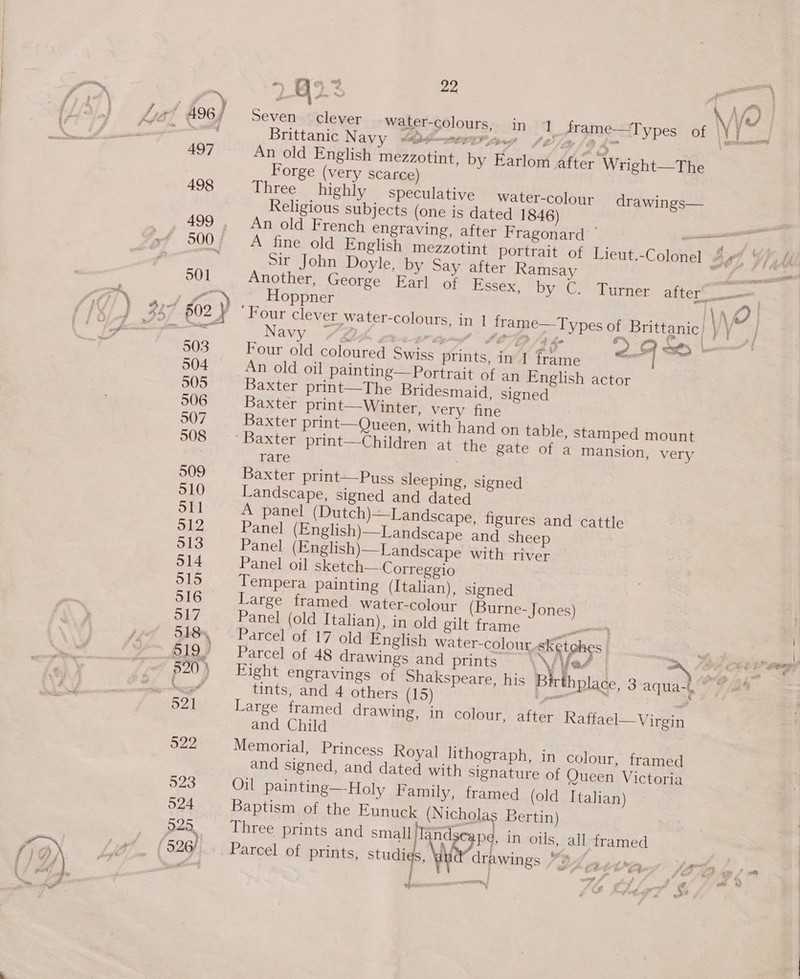 22
Lot 496 Seven clever water-colours, in 1 frame—Types of
Brittanic Navy
497 An old English mezzotint, by Earlom after Wright—The
Forge (very scarce)
498 Three highly speculative water-colour drawings—
Religious subjects (one is dated 1846)
499 An old French engraving, after Fragonard
500 A fine old English mezzotint portrait of Lieut.-Colonel
Sir John Doyle, by Say after Ramsay
501 Another, George Earl of Essex, by C. Turner after
Hoppner
502 Four clever water-colours, in 1 frame—Types of Brittanic
Navy
503 Four old coloured Swiss prints, in 1 frame
504 An old oil painting—Portrait of an English actor
505 Baxter print—The Bridesmaid, signed
506 Baxter print—Winter, very fine
507 Baxter print—Queen, with hand on table, stamped mount
508 Baxter print—Children at the gate of a mansion, very
rare
509 Baxter print—Puss sleeping, signed
510 Landscape, signed and dated
511 A panel (Dutch)—Landscape, figures and cattle
512 Panel (English)—Landscape and sheep
513 Panel (English)—Landscape with river
514 Panel oil sketch—Correggio
515 Tempera painting (Italian), signed
516 Large framed water-colour (Burne-Jones)
517 Panel (old Italian), in old gilt frame
518 Parcel of 17 old English water-colour sketches
519 Parcel of 48 drawings and prints
520 Eight engravings of Shakspeare, his Birthplace, 3 aqua-
tints, and 4 others (15)
521 Large framed drawing, in colour, after Raffael—Virgin
and Child
522 Memorial, Princess Royal lithograph, in colour, framed
and signed, and dated with signature of Queen Victoria
523 Oil painting—Holy Family, framed (old Italian)
524 Baptism of the Eunuck (Nicholas Bertin)
525 Three prints and small landscape, in oils, all framed
526 Parcel of prints, studies, and drawings